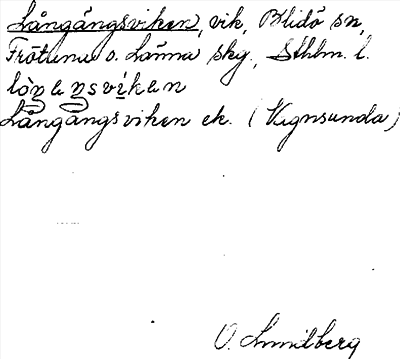 Långängsviken, vik, Blidö sn,
Frötuna o. Länna skg., Sthlm. l.
Långängsviken ek. (Vignsunda)
O. Lundberg